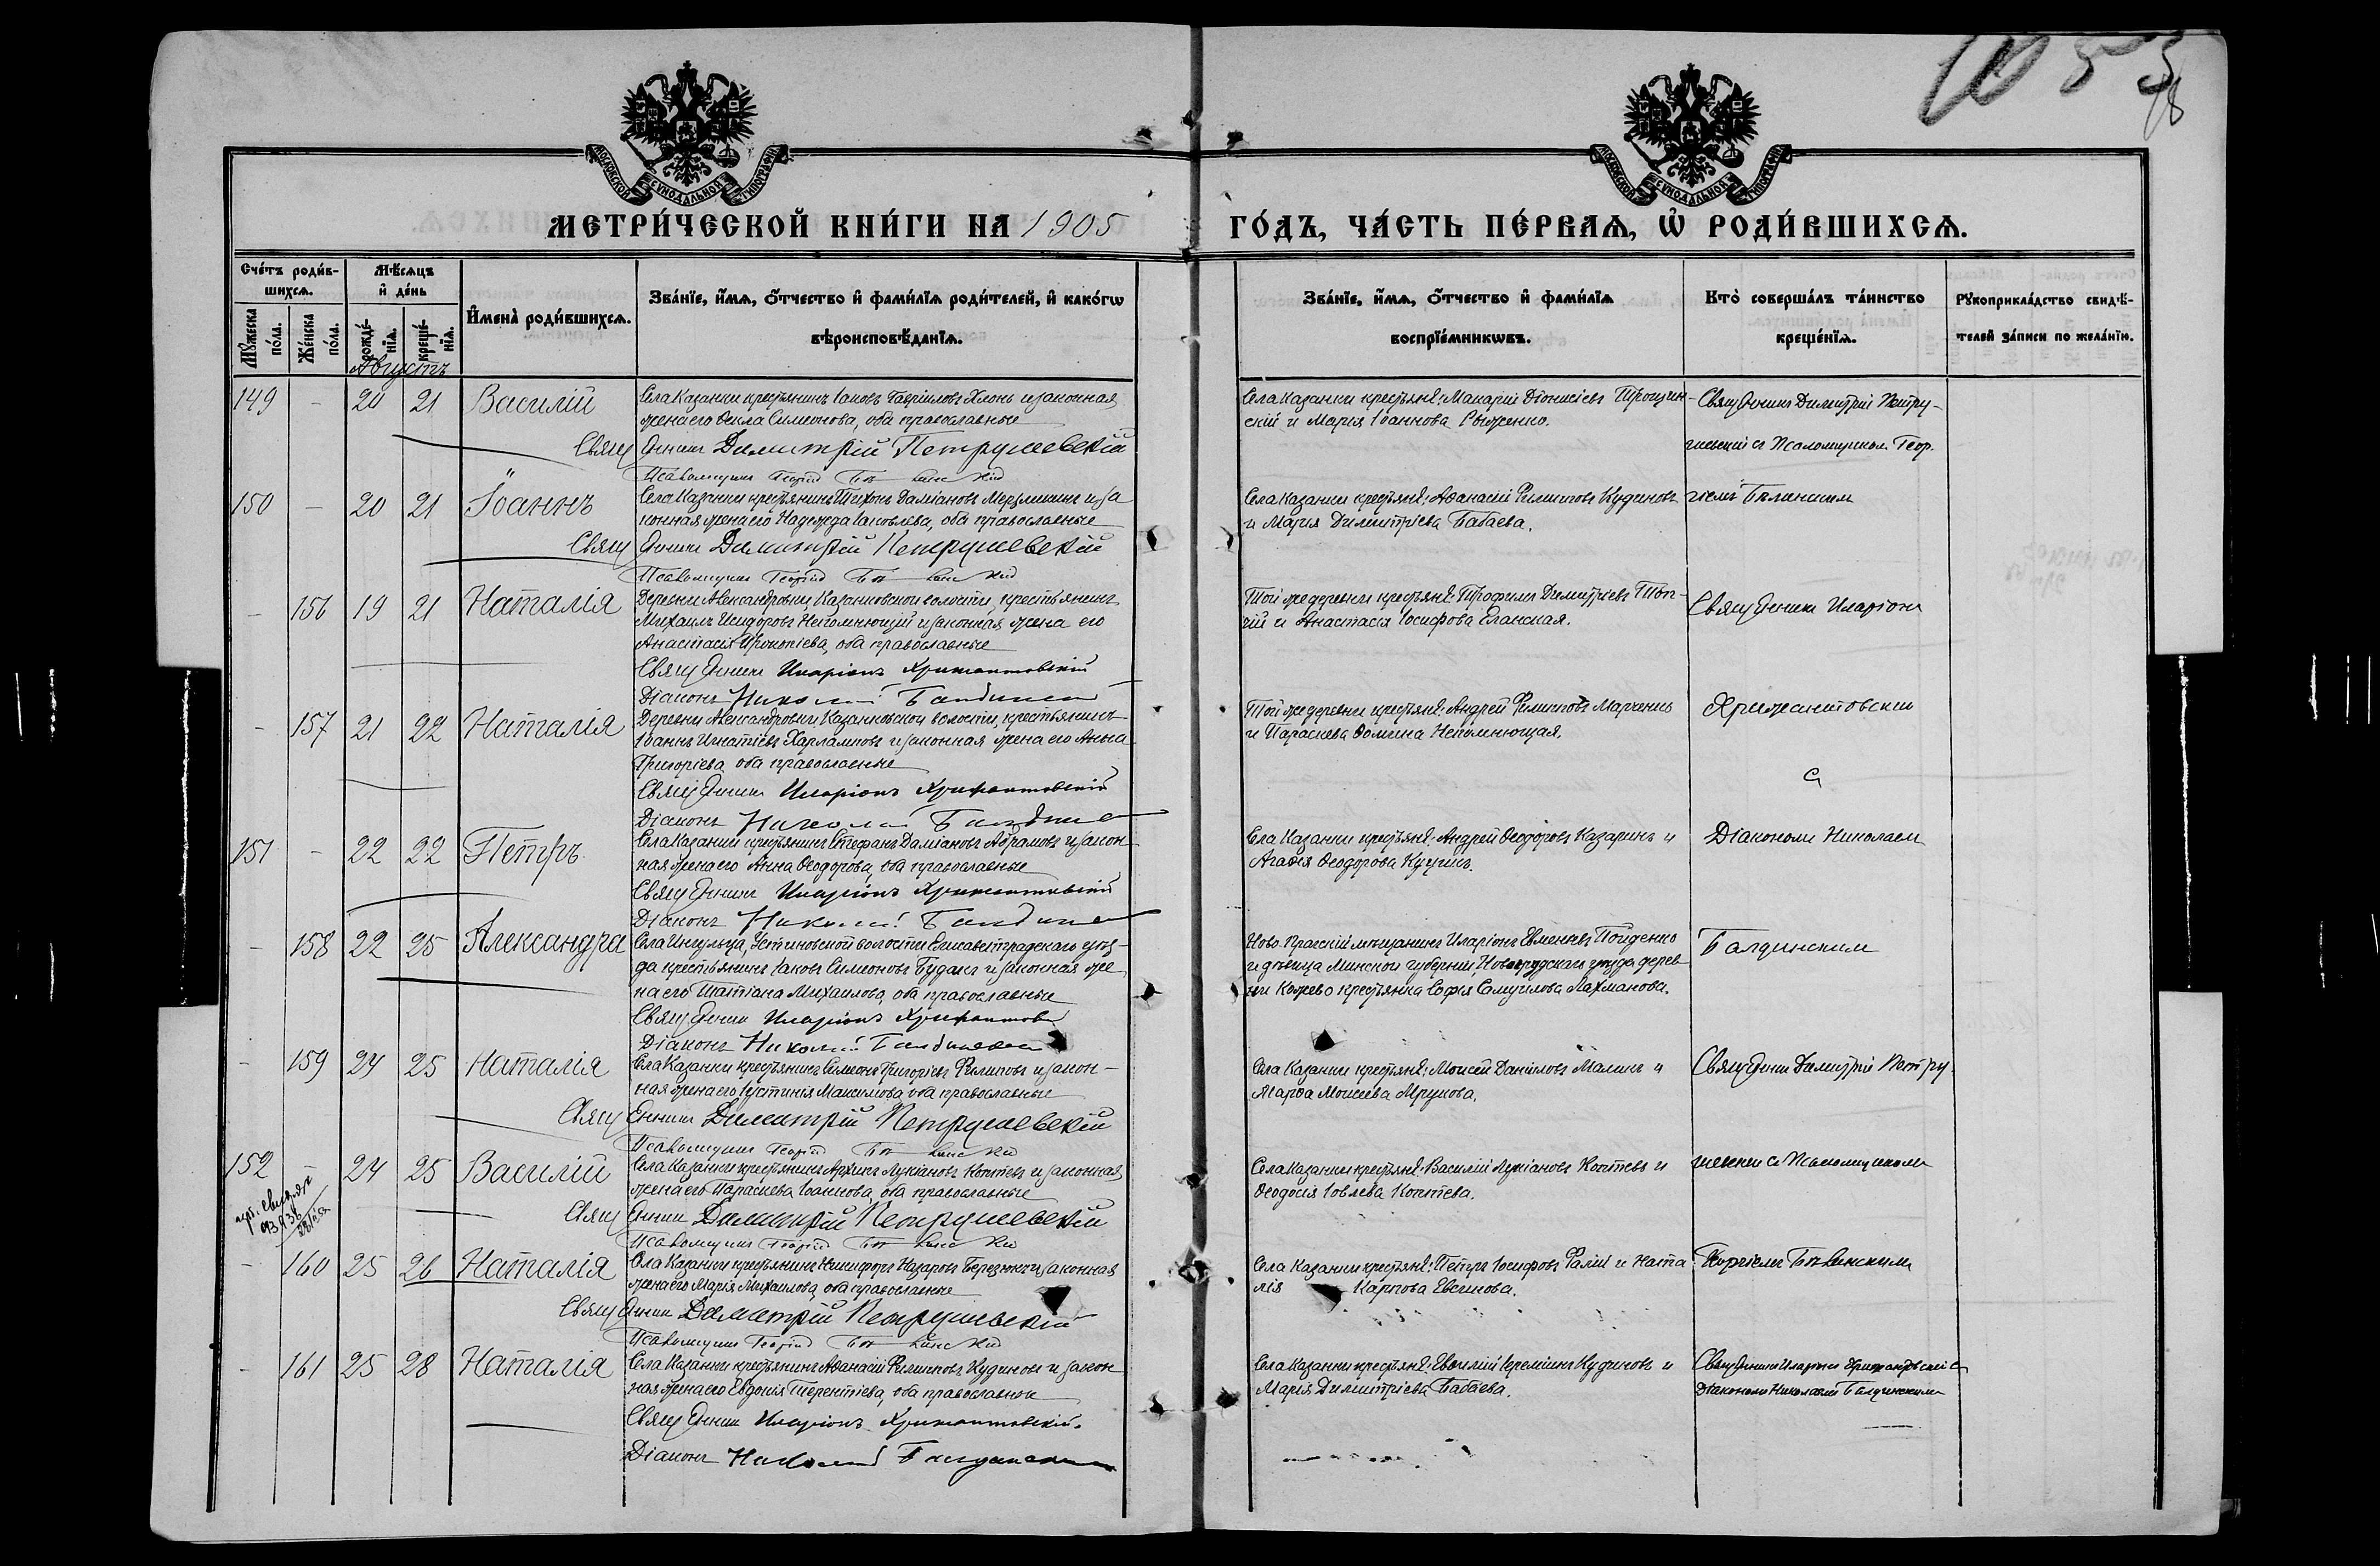 1053
78
МОСКОВСКОЙ СѴНОДАЛЬНОЙ ТИПОГРАФІИ
МОСКОВСКОЙ СѴНОДАЛЬНОЙ ТИПОГРАФІИ
МЕТРИ́ЧЕСКОЙ КНИ́ГИ НА 1905 ГО́ДЪ, ЧА́СТЬ ПЕ́РВАѦ, Ѡ҆ РОДИ́ВШИХСѦ.
Сче́тъ роди́в-
шихсѧ.
Мꙋ́жеска по́ла.
Же́нска по́ла.
Мѣ́сѧцъ
и҆ де́нь
рожде́-
нїѧ.
креще́-
нїѧ.
И҆мена̀ роди́вшихсѧ.
Зва́нїе, и҆́мѧ, ѻ҆́тчество и҆ фами́лїѧ роди́телей, и҆ како́гѡ
вѣроисповѣ́данїѧ.
Зва́нїе, и҆́мѧ, ѻ҆́тчество и҆ фами́лїѧ
воспрїе́мникѡвъ.
Кто̀ соверша́лъ та́инство
креще́нїѧ.
Рꙋкоприкла́дство свидѣ́-
телей за́писи по жела́нїю.
Августъ
149 - 20 21 Василій
Села Казанки крестьянинъ Іаковъ Гавріиловъ Хлонь и законная
жена его Ѳекла Симеонова, оба православные
Священникъ Димитрій Петрушевскій
Псаломщикъ Георгій
Села Казанки крестьяне: Макарій Діонисіевъ Трощин-
скій и Марія Іоаннова Рыженко.
Священникъ Димитрій Петру-
шевскій съ Псаломщикомъ Геор-
150 - 20 21 Іоаннъ
Села Казанки крестьянинъ Тихонъ Даміановъ Мерзликинъ и за
конная жена его Надежда Іаковлева, оба православные
Священникъ Димитрій Петрушевскій
Псаломщикъ Георгій
Села Казанки крестьяне: Аѳанасій Филипповъ Кудиновъ
и Марія Димитріева Бабаева.
гіемъ
- 156 19 21 Наталія
Деревни Александровки, Казанковской волости, крестьянинъ
Михаилъ Исидоровъ Непомнющій и законная жена его
Анастасія Прокопіева, оба православные
Священникъ Иларіонъ
Діаконъ Николай
Той же деревни крестьяне: Трофимъ Димитріевъ
и Анастасія Іосифова Еланская.
Священникъ Иларіонъ
- 157 21 22 Наталія
Деревни Александровки Казанковской волости, крестьянинъ
Іоаннъ Игнатіевъ Харламповъ и законная жена его Анна
Григоріева оба православные
Священникъ Иларіонъ
Діаконъ Николай
Той же деревни крестьяне: Андрей Филипповъ Марченко
и Параскева Ѳомина Непомнющая.
съ
151 - 22 22 Петръ
Села Казанки крестьянинъ Стефанъ Даміановъ Абрамовъ и закон-
ная жена его Анна Ѳеодорова, оба православные
Священникъ Иларіонъ
Діаконъ Николай
Села Казанки крестьяне: Андрей Ѳеодоровъ Казаринъ и
Агаѳія Ѳеодорова
Діакономъ Николаемъ
- 158 22 25 Александра
Села Ингульца, Устиновской волости Елисаветградскаго уѣз-
да крестьянинъ Іаковъ Симеоновъ Буданъ и законная же
на его Татіана Михаилова, оба православные
Священникъ Иларіонъ
Діаконъ Николай
Ново-Прагскій мѣщанинъ Иларіонъ Евменіевъ Пойденко
и дѣвица Минской губерніи, Новогрудскаго уѣзда дерев
ни крестьянка Софія Самуилова Лахманова.
Балдинскимъ
- 159 24 25 Наталія
Села Казанки крестьянинъ Симеонъ Григоріевъ Филиповъ и закон-
ная жена его Іустинія Максимова оба православные
Священникъ Димитрій Петрушевскій
Псаломщикъ Георгій
Села Казанки крестьяне: Моисей Даніиловъ Малинъ и
Марѳа Моисеева
Священникъ Димитрій Петру-
152 - 24 25 Василій
Села Казанки крестьянинъ Архипъ Лукіановъ Коптевъ и законная
жена его Параскева Іоаннова, оба православные
Священникъ Димитрій Петрушевскій
Псаломщикъ Георгій
Села Казанки крестьяне: Василій Лукіановъ Коптевъ и
Ѳеодосія Іовлева Коптева.
шевскій съ Псаломщикомъ
- 160 25 26 Наталія
Села Казанки крестьянинъ Никифоръ Назаровъ Березюкъ и законная
жена его Марія Михаилова, оба православные
Священникъ Димитрій Петрушевскій
Псаломщикъ Георгій
Села Казанки крестьяне: Петръ Іосифовъ и Ната
лія Карпова Евсикова.
Георгіемъ
- 161 25 28 Наталія
Села Казанки крестьянинъ Аѳанасій Филипповъ Кудиновъ и закон
ная жена его Евдокія Терентіева, оба православные
Священникъ Иларіонъ
Діаконъ Николай Балдинскій
Села Казанки крестьяне: Евѳимій Іереміинъ Кудиновъ и
Марія Димитріева Бабаева.
Священникъ Иларіонъ съ
Діакономъ Николаемъ Балдинскимъ